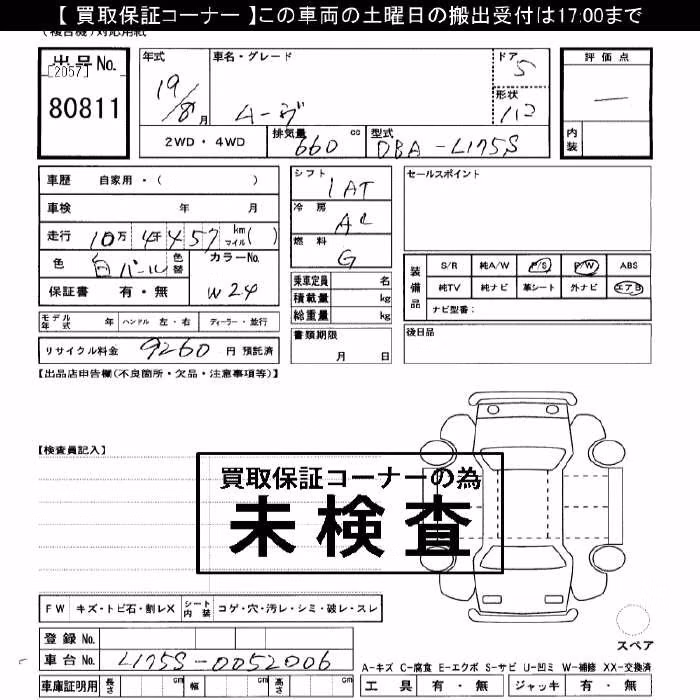 【 買取保証コーナー 】この車両の土曜日の搬出受付は17:00まで
(複合機)対応用紙
出品No. [2057]
80811
年式 19/8月
車名・グレード ムーヴ
ドア 5
形状 112
評価点 —
内装
2WD・4WD
排気量 660 cc
型式 DBA-L175S
車歴 自家用・( )
車検 年 月
走行 10万4千457 km マイル( )
色 白パール 色替
カラーNo. W24
保証書 有・無
モデル年式 年 ハンドル 左・右 ディーラー・並行
リサイクル料金 9260 円 預託済
シフト IAT
冷房 AC
燃料 G
乗車定員 名
積載量 kg
総重量 kg
書類期限
月 日
セールスポイント
装備品
S/R 純A/W P/S P/W ABS
純TV 純ナビ 革シート 外ナビ エアB
ナビ型番:
後日品
【出品店申告欄(不良箇所・欠品・注意事項等)】
【検査員記入】
買取保証コーナーの為
未検査
FW キズ・トビ石・割レX シート内装 コゲ・穴・汚レ・シミ・破レ・スレ
登録No.
車台No. L175S-0052006
車庫証明用 長さ cm 幅 cm 高さ cm
スペア
A-キズ C-腐食 E-エクボ S-サビ U-凹ミ W-補修 XX-交換済
工具 有・無 ジャッキ 有・無